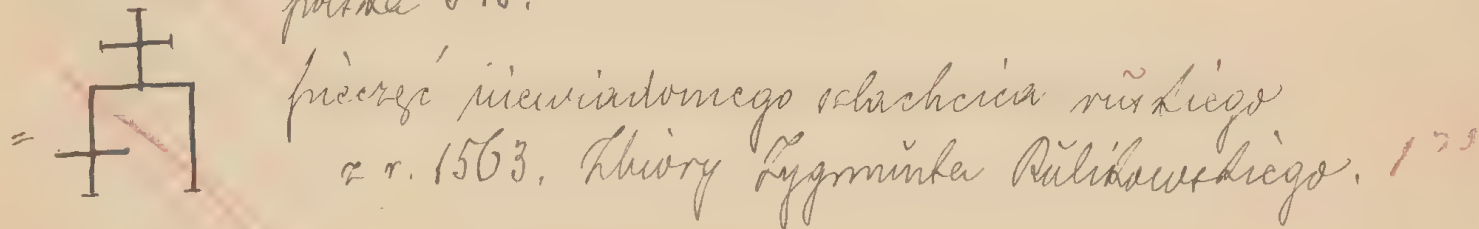 pieczęć niewiadomego szlachcica ruskiego
z r. 1563. Zbiory Zygmunta Rulikowskiego.